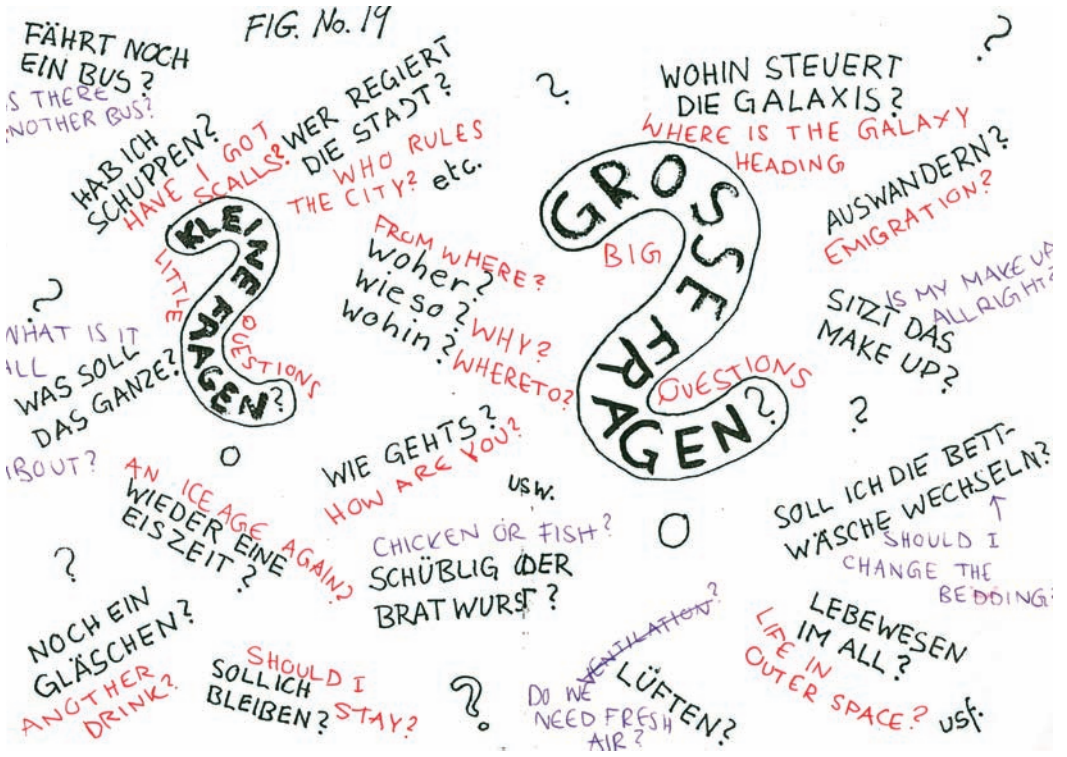 FIG. No. 19
FÄHRT NOCH
EIN BUS?
S THERE
NOTHER BUS?
HAB ICH
SCHUPPEN?
HAVE I GOT
SCALLS?
WER REGIERT
DIE STADT?
WHO RULES
THE CITY?
etc.
WOHIN STEUERT
DIE GALAXIS?
WHERE IS THE GALAXY
HEADING
AUSWANDERN?
EMIGRATION?
KLEINE FRAGEN?
LITTLE
QUESTIONS
FROM WHERE?
woher?
wieso?
WHY?
wohin?
WHERETO?
GROSSE FRAGEN?
BIG
QUESTIONS
IS MY MAKE UP
ALLRIGHT?
SITZT DAS
MAKE UP?
WHAT IS IT
ALL
WAS SOLL
DAS GANZE?
BOUT?
WIE GEHTS?
HOW ARE YOU?
usw.
AN ICE AGE AGAIN?
WIEDER EINE
EISZEIT?
CHICKEN OR FISH?
SCHÜBLIG ODER
BRATWURST?
SOLL ICH DIE BETT-
WÄSCHE WECHSELN?
SHOULD I
CHANGE THE
BEDDING?
NOCH EIN
GLÄSCHEN?
ANOTHER
DRINK?
SHOULD I
SOLL ICH
BLEIBEN?
STAY?
VENTILATION?
DO WE
NEED FRESH
AIR?
LÜFTEN?
LEBEWESEN
IM ALL?
LIFE IN
OUTER SPACE?
usf.